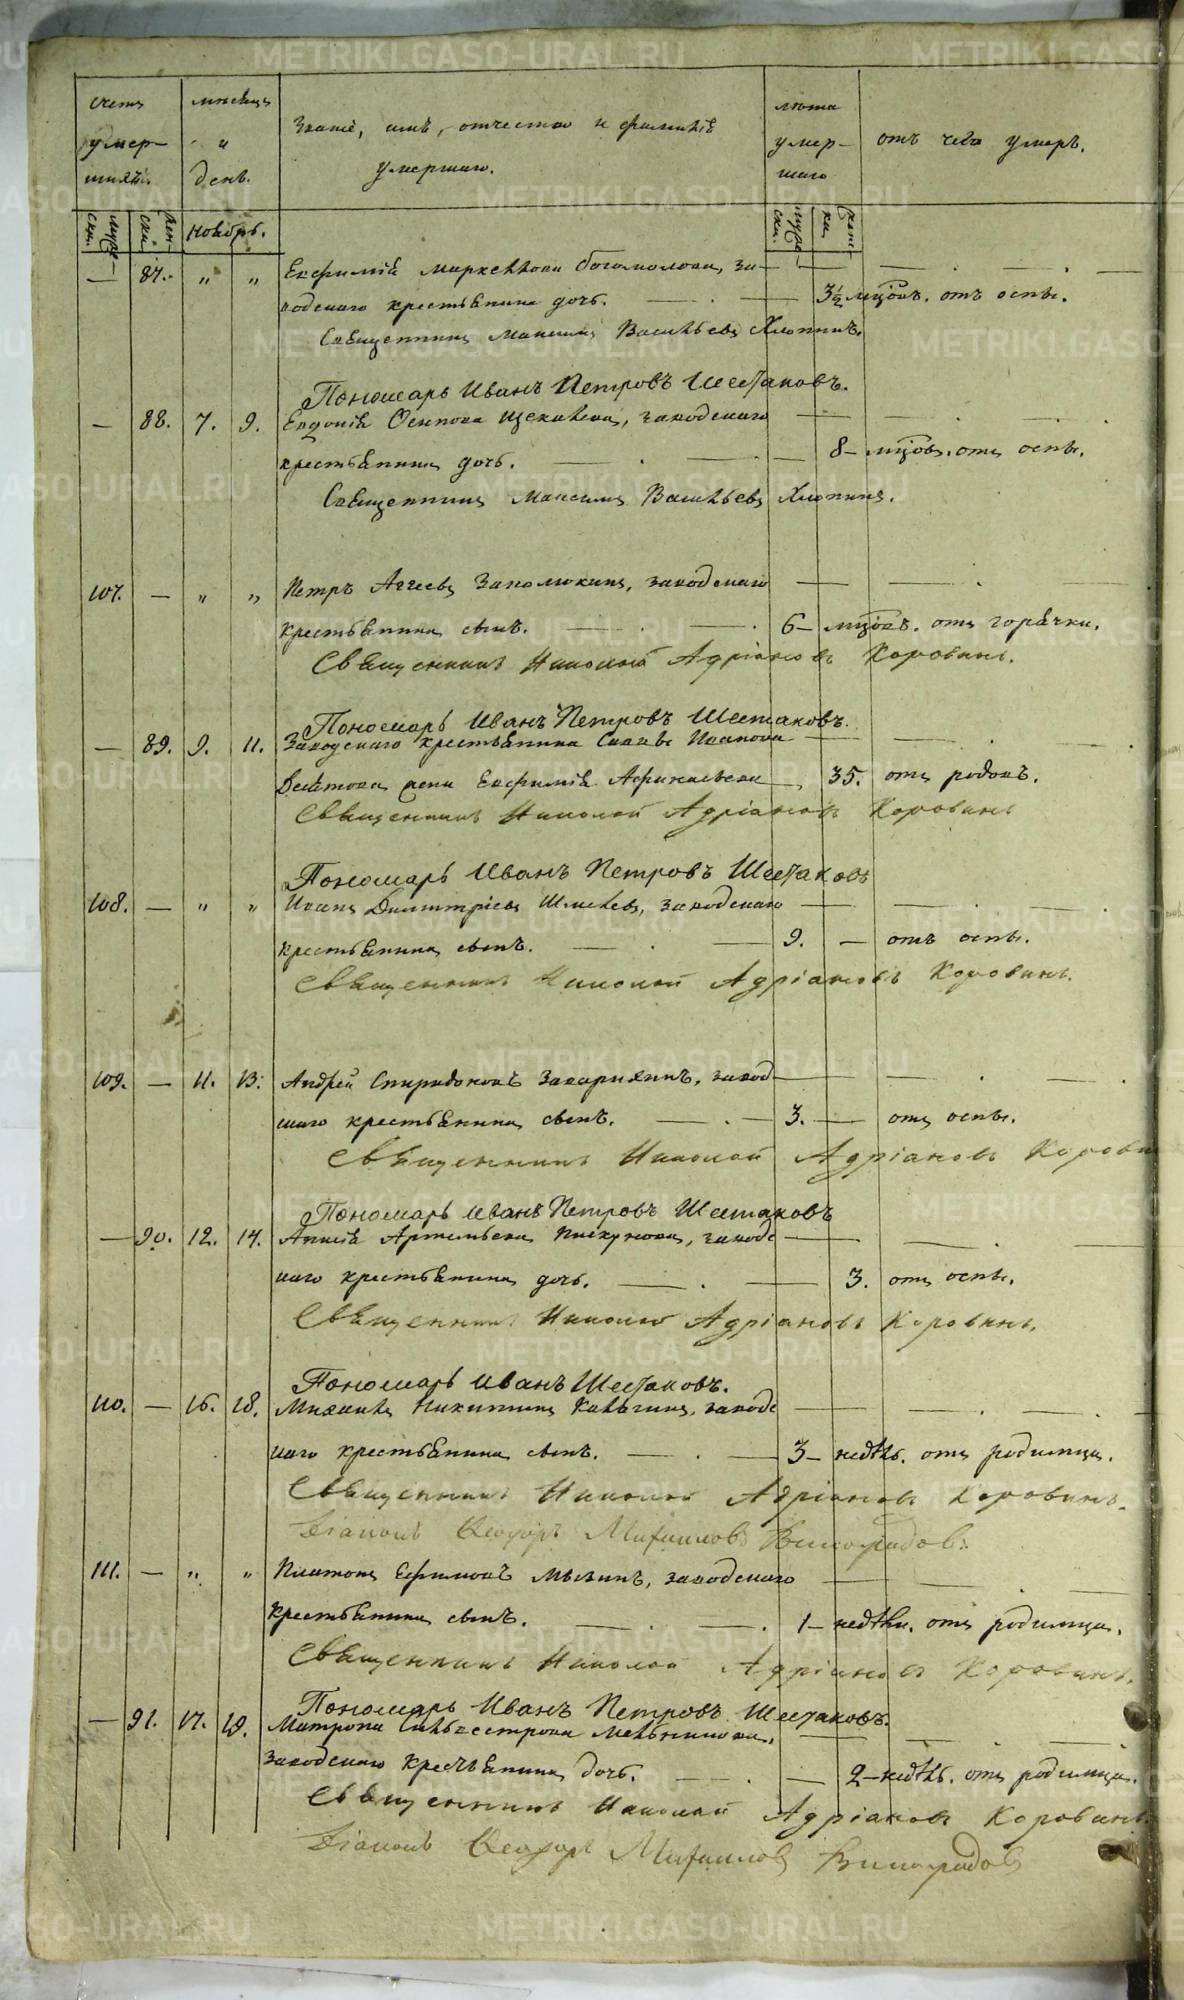 счетъ умер- шихъ.
мѣсяцъ и день.
Званіе, имѣ, отчество и фамилія
умершаго.
лѣта умер- шаго
отъ чего умеръ.
муж- ски. жен- ски. Ноябрь. муже- ски. женс- ки.
— 87. „ „ Евфимія Маркеллова Богомолова, за-
водскаго крестьянина дочь. — 3½ мцовъ. отъ оспы.
Священникъ Максимъ Васильевъ Хлопинъ.
Пономарь Иванъ Петровъ Шестаковъ.
— 88. 7. 9. Евдокія Осипова, заводскаго
крестьянина дочь. — 8 – мцовъ. отъ оспы.
Священникъ Максимъ Васильевъ Хлопинъ.
107. — „ „ Петръ Аггеевъ, заводскаго
крестьянина сынъ. — 6 – мцовъ. отъ горячки.
Священникъ Николай Адріановъ Коровинъ.
Пономарь Иванъ Петровъ Шестаковъ.
— 89. 9. 11. Заводскаго крестьянина Саввы Иванова
Десятова жена Евфимія — 35. отъ родовъ.
Священникъ Николай Адріановъ Коровинъ
Пономарь Иванъ Петровъ Шестаковъ
108. — „ „ Иванъ Димитріевъ Шмелевъ, заводскаго
крестьянина сынъ. — 9. — отъ оспы.
Священникъ Николай Адріановъ Коровинъ.
109. — 11. 13. Андрей Спиридоновъ, завод
скаго крестьянина сынъ. — 3. — отъ оспы.
Священникъ Николай Адріановъ Корови
Пономарь Иванъ Петровъ Шестаковъ
— 90. 12. 14. Артемьева, заводс
каго крестьянина дочь. — 3. отъ оспы.
Священникъ Николай Адріановъ Коровинъ.
Пономарь Иванъ Шестаковъ.
110. — 16. 18. Михаилъ Никитинъ, заводс
каго крестьянина сынъ. — 3 – недѣль. отъ родимца.
Священникъ Николай Адріановъ Коровинъ.
Діаконъ Ѳеодоръ Михаиловъ Виноградовъ.
111. — „ „ Платонъ Ефимовъ, заводскаго
крестьянина сынъ. — 1 – недѣли. отъ родимца.
Священникъ Николай Адріановъ Коровинъ.
Пономарь Иванъ Петровъ Шестаковъ.
— 91. 17. 19. Матрона Сильвестрова Мельникова,
заводскаго крестьянина дочь. — 2 – недѣль. отъ родимца.
Священникъ Николай Адріановъ Коровинъ.
Діаконъ Ѳеодоръ Михаиловъ Виноградовъ
METRIKI.GASO-URAL.RU